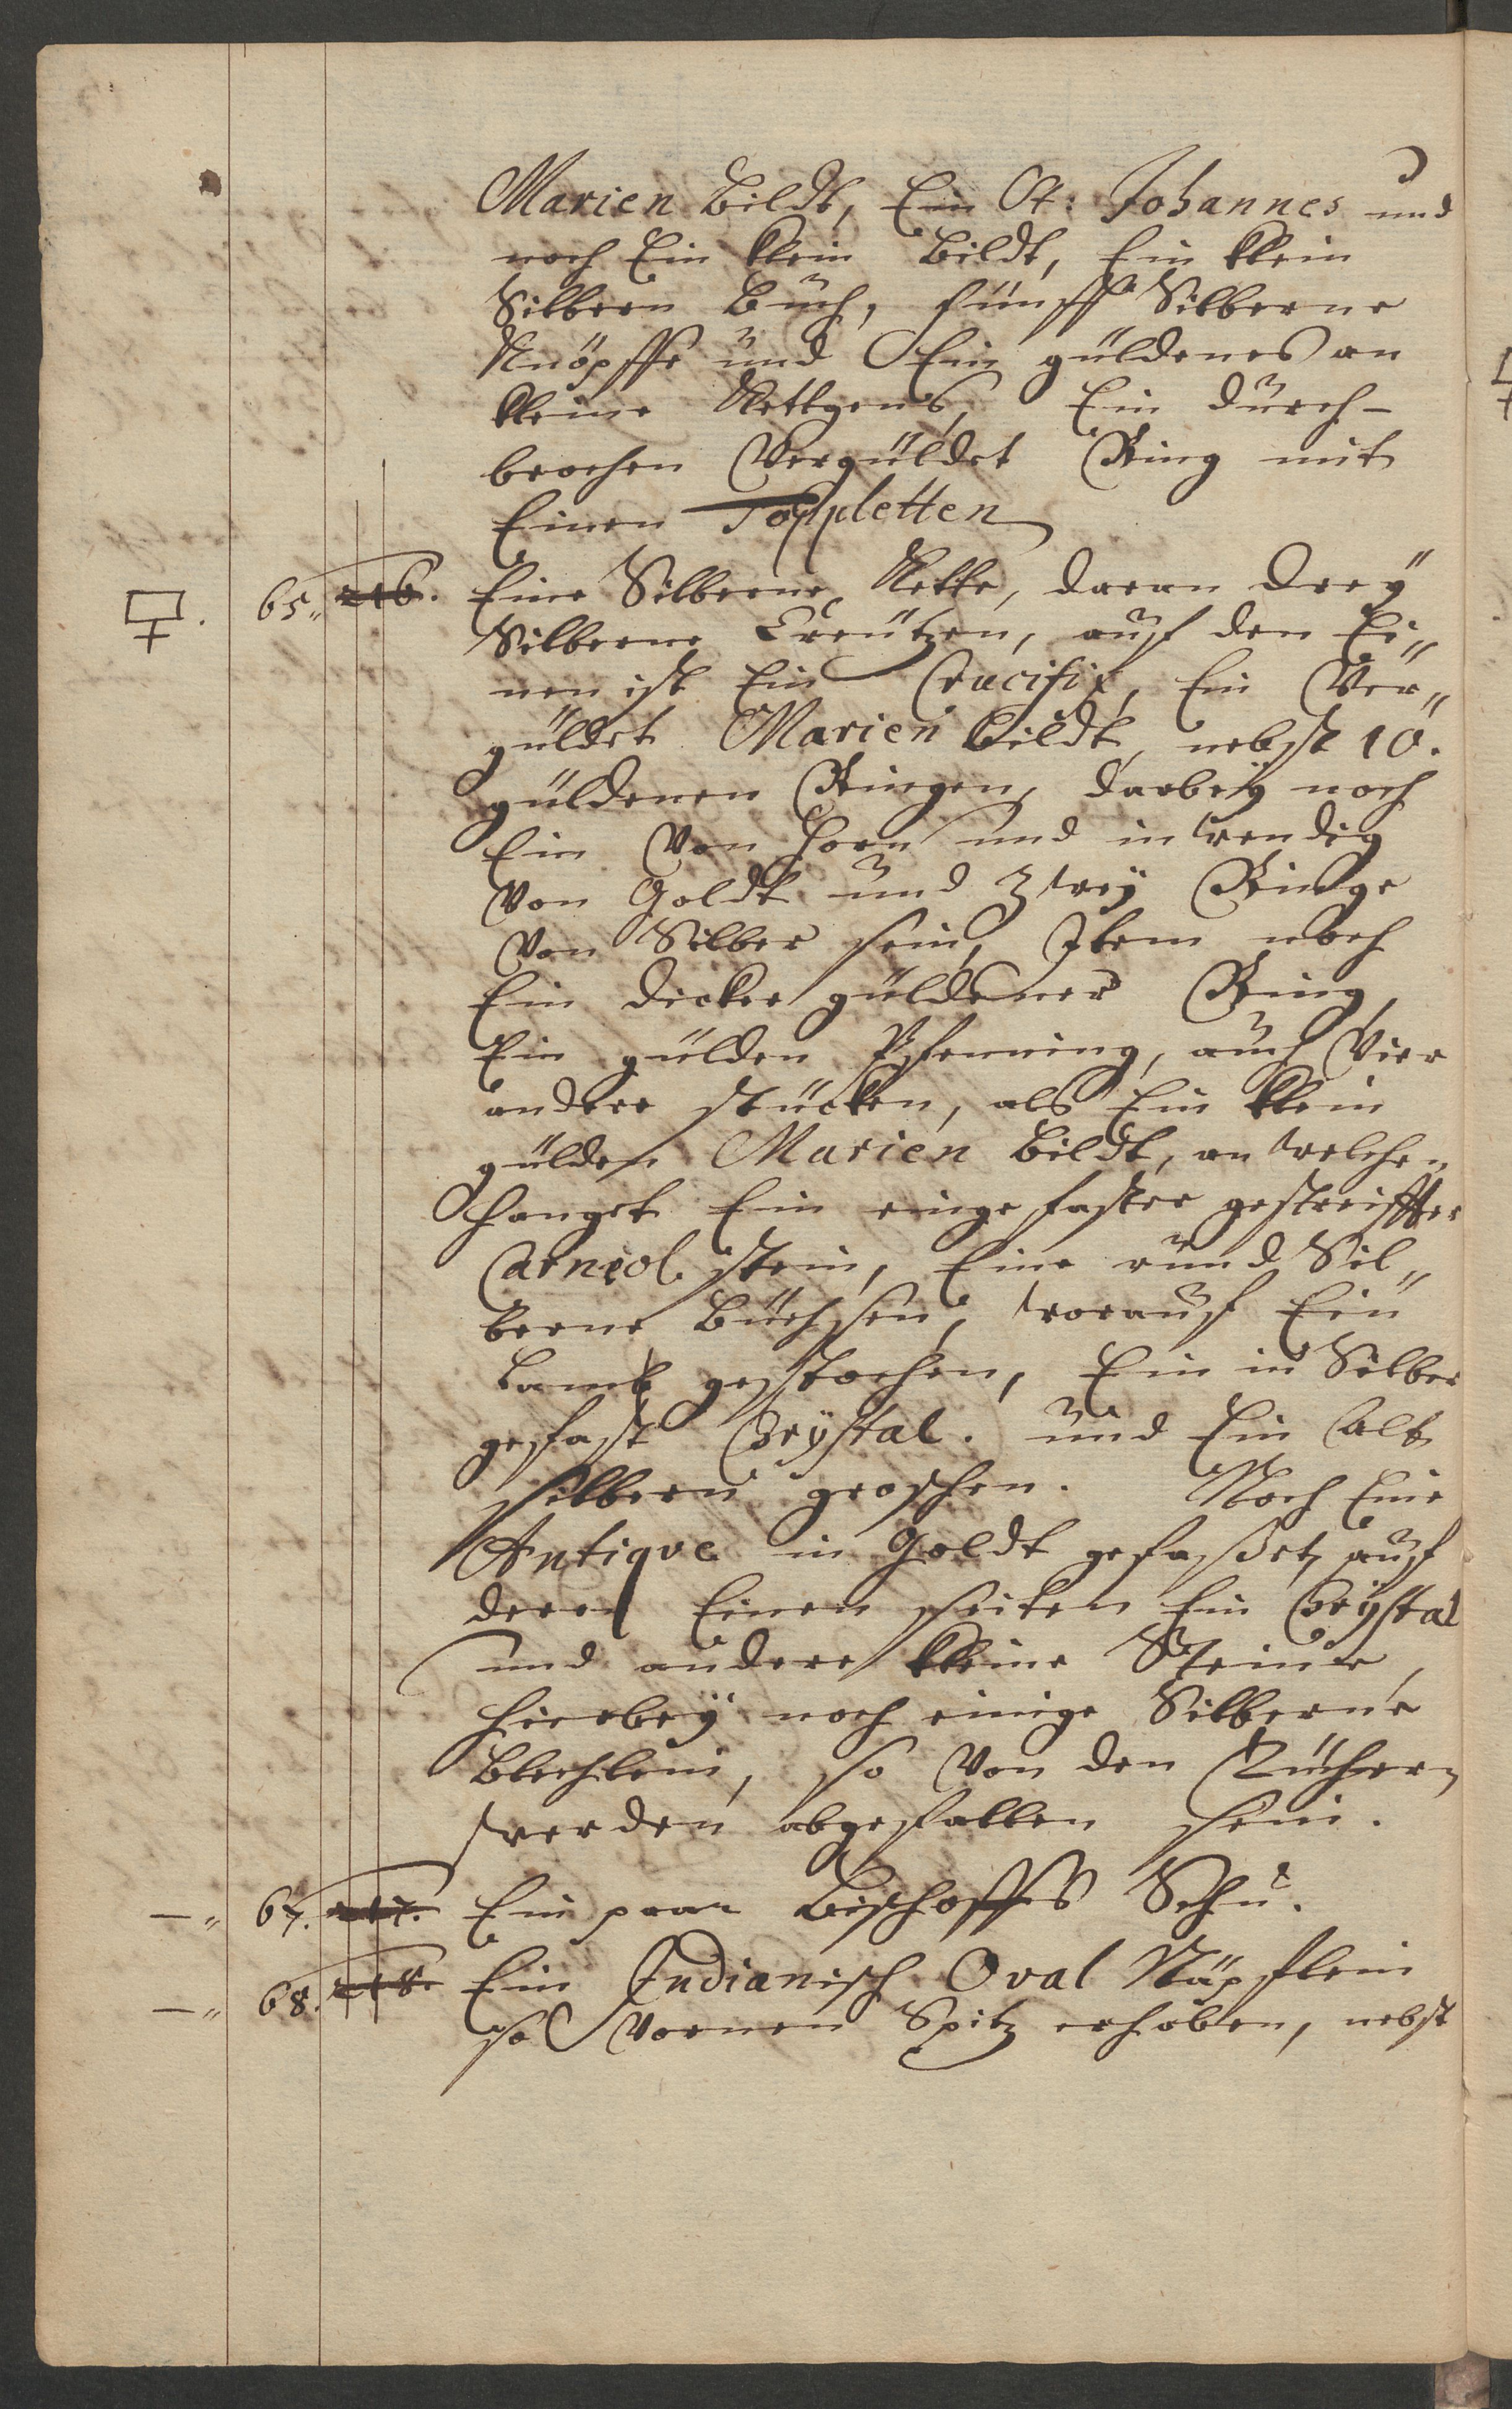 Marien Bildt, Ein St: Johannes und
noch Ein klein Bildt, Ein klein
Silbern Buch, fünff Silberne
Knöpffe und Ein güldenes an
kleine Kettgens, Ein durch-
brochen Vergüldet Ring mit
Einen Toppletten
65„ 216. Eine Silberne Kette, daran drey
Silberne Creutzen, auf den Ei„
nen ist Ein Crucifix, Ein Ver„
güldet Marien Bildt, nebst 10.
güldenen Ringen, darbey noch
Ein Von Horn und inwendig
Von Goldt und Zwey Ringe
Von Silber sein, Item noch
Ein dicker güldener Ring,
Ein gülden Pfenning, auch Vier
andere stücken, als Ein klein
gülden Marien Bildt, an welchen
hanget Ein eingefaster gestreiffter
Carneol stein, Eine rund Sil„
berne Büchsen, worauf Ein
Lamb gestochen, Ein in Silber
gefast Crystal. und Ein Alt
silbern groschen. Noch Eine
Antique in Goldt gefaßet, auf
deren Einen seiten Ein Crystal
und andere kleine Steine,
hierbey noch einige Silberne
Blechlein, so Von den
werden abgefallen sein.
—„ 67. 217. Ein paar Bischoffes Schu.
—„ 68. 218. Ein Indianisch Oval Näpflein
so Vornen Spitz erhoben, nebst